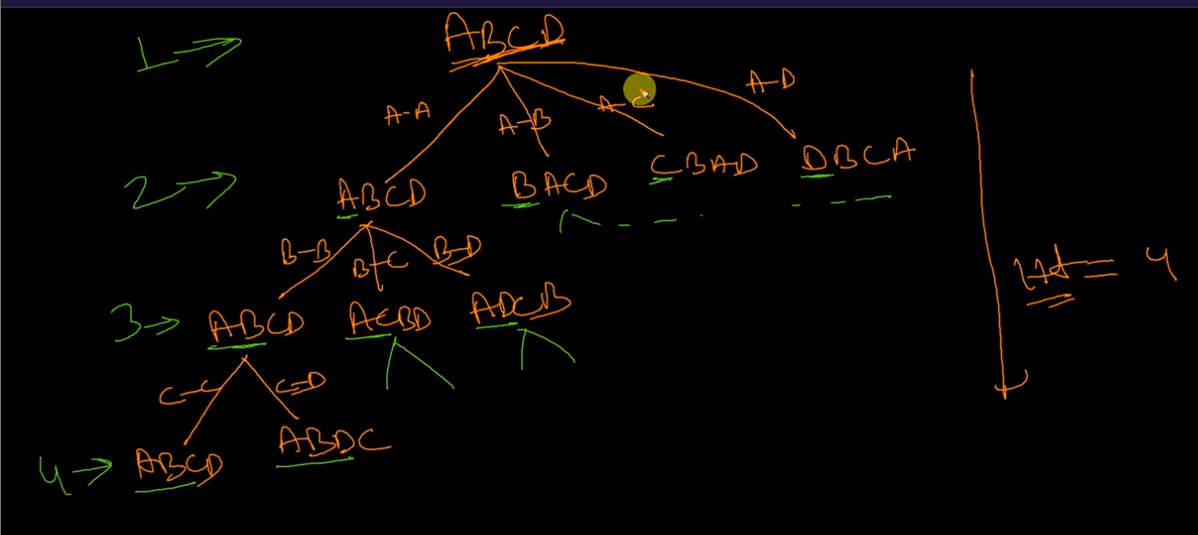 1→ ABCD
A-A A-B A-C A-D
2→ ABCD BACD CBAD DBCA
B-B B-C B-D
Ht = 4
3→ ABCD ACBD ADCB
C-C C=D
4→ ABCD ABDC